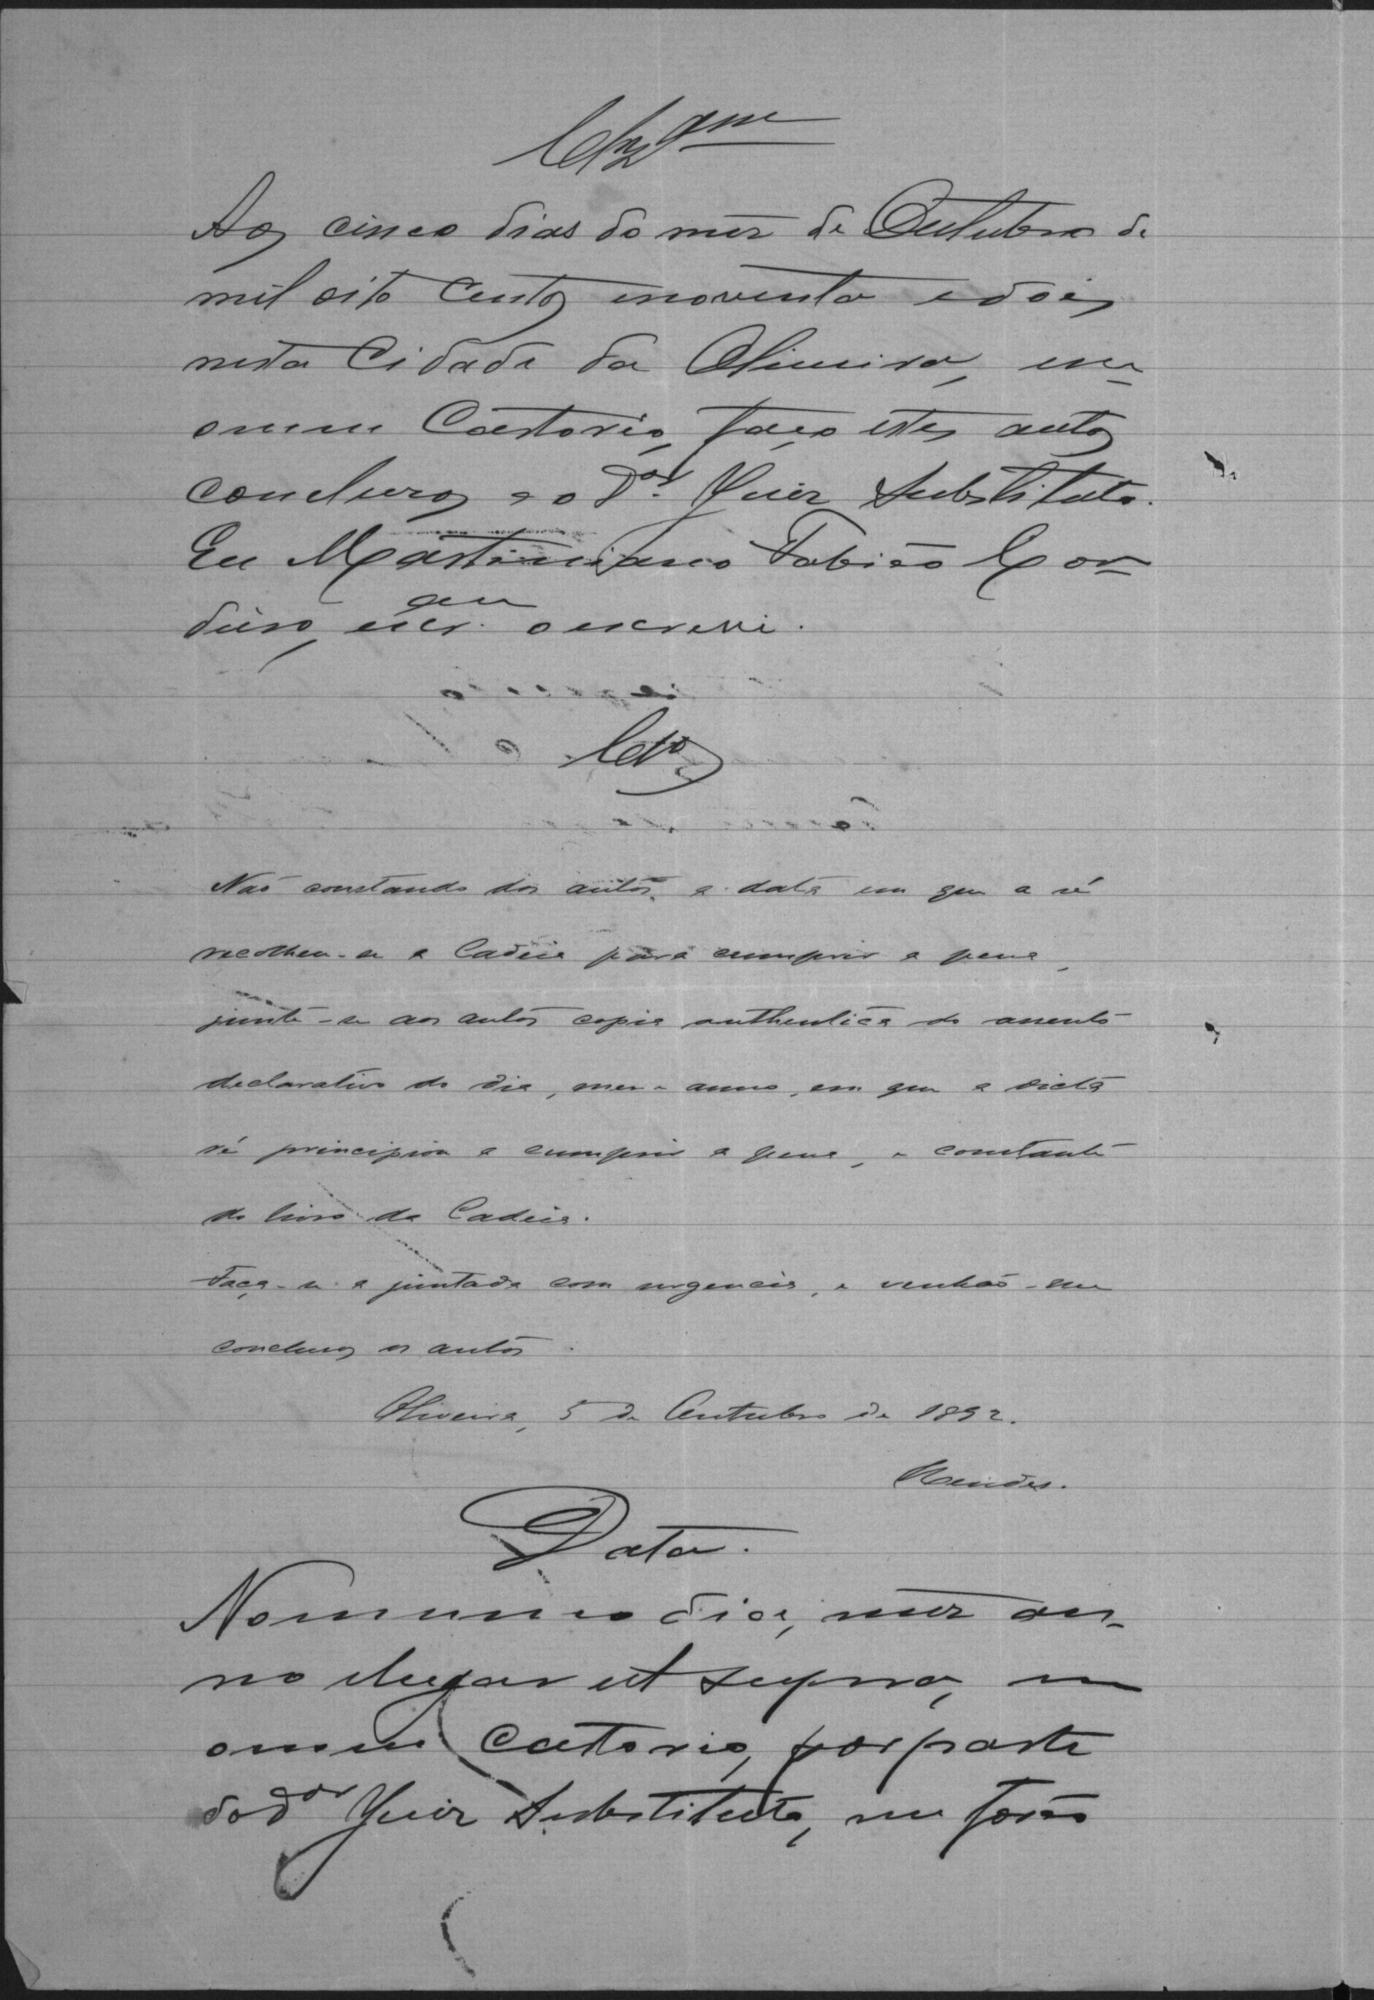 Clz.am
Aos cinco dias do mez de Outubro de
mil oito centos e noventa e dois
nesta Cidade da Oliveira, em
o meu Cartorio, faço estes autos
concluzos ao Dor. Juiz Substituto.
Eu Martiniano Fabião Cor-
deiro, escram. o escrevi.
Clos
Não constando dos autos, a data em que a ré
recolheu-se a Cadeia para cumprir a pena,
junte-se aos autos copia authentica do assento
declarativo do dia, mez e anno, em que a dicta
ré principiou a cumprir a pena, e constante
do livro da Cadeia.
Faça-se a juntada com urgencia, e venhão-me
concluzos os autos.
Oliveira, 5 de Outubro de 1892.
Mendes.
Data.
No mesmo dia, mez an-
no e lugar ut supra, em
o meu Cartorio, por parte
do dor Juiz Substituto, me forão